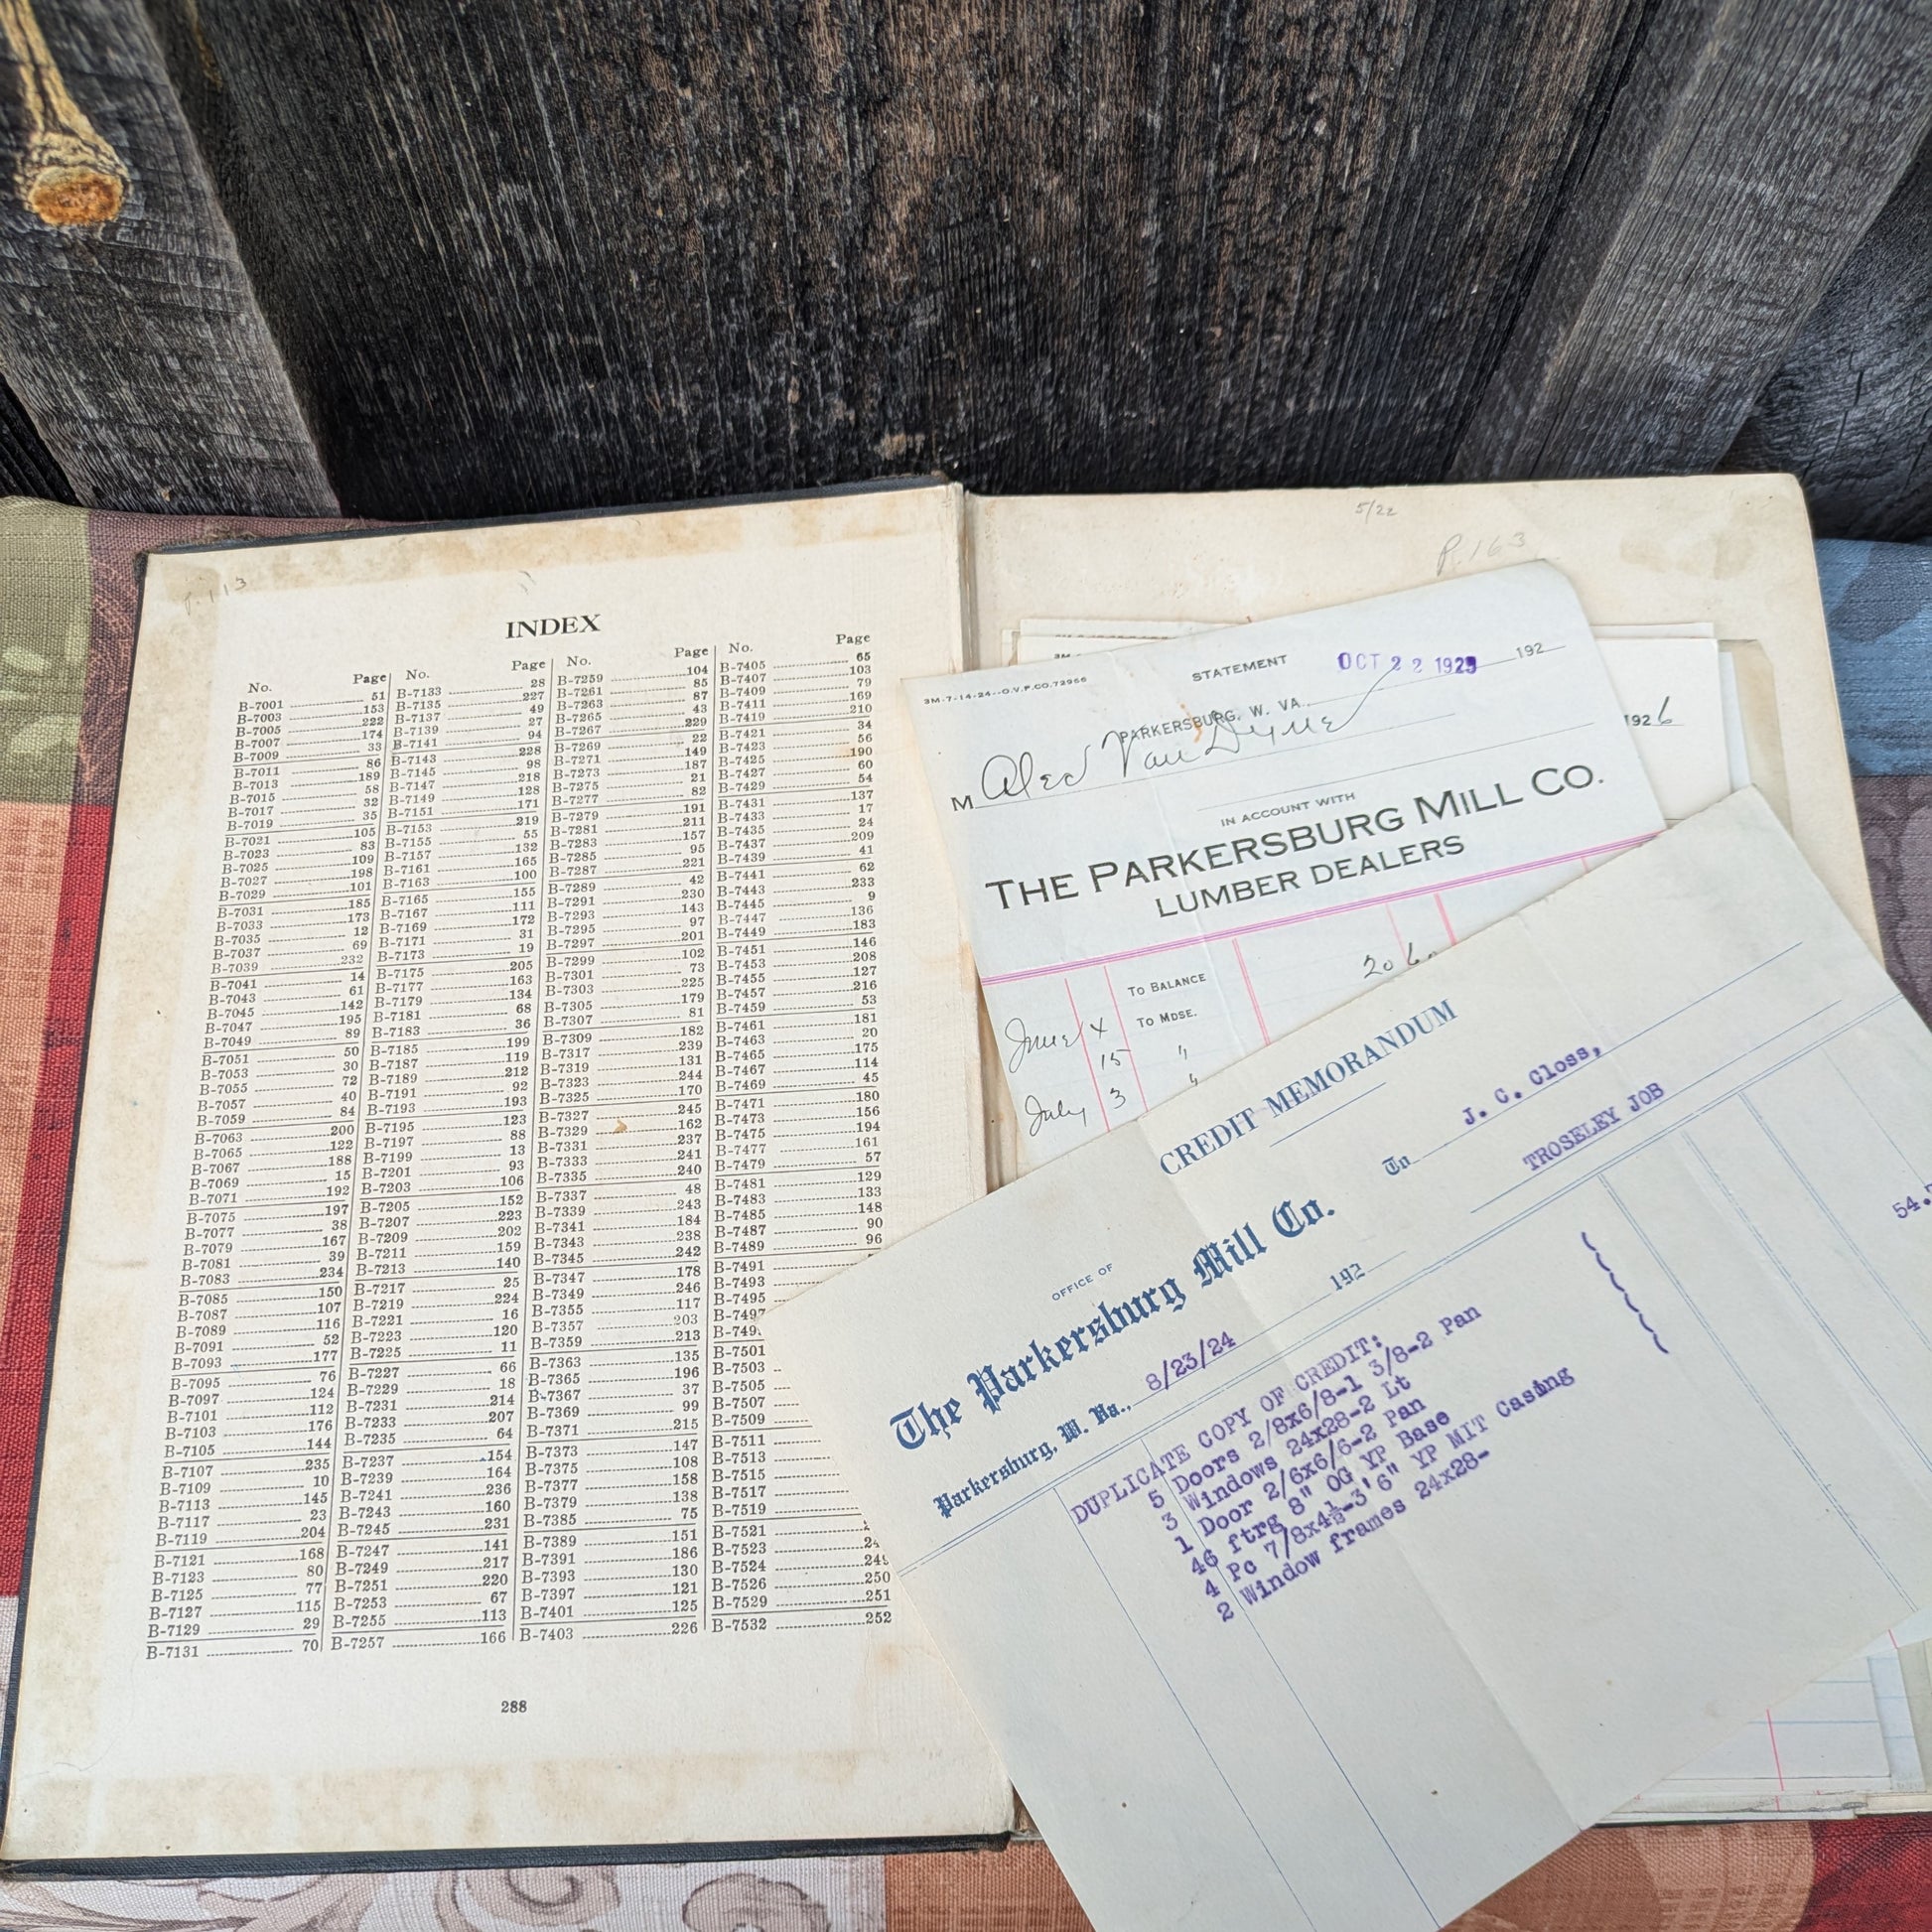 P. 113
INDEX
No. Page
B-7001 51
B-7003 153
B-7005 222
B-7007 174
B-7009 33
B-7011 86
B-7013 189
B-7015 58
B-7017 32
B-7019 35
B-7021 105
B-7023 83
B-7025 109
B-7027 198
B-7029 101
B-7031 185
B-7033 173
B-7035 12
B-7037 69
B-7039 232
B-7041 14
B-7043 61
B-7045 142
B-7047 195
B-7049 89
B-7051 50
B-7053 30
B-7055 72
B-7057 40
B-7059 84
B-7063 200
B-7065 122
B-7067 188
B-7069 15
B-7071 192
B-7075 197
B-7077 38
B-7079 167
B-7081 39
B-7083 234
B-7085 150
B-7087 107
B-7089 116
B-7091 52
B-7093 177
B-7095 76
B-7097 124
B-7101 112
B-7103 176
B-7105 144
B-7107 235
B-7109 10
B-7113 145
B-7117 23
B-7119 204
B-7121 168
B-7123 80
B-7125 77
B-7127 115
B-7129 29
B-7131 70
No. Page
B-7133 28
B-7135 227
B-7137 49
B-7139 27
B-7141 94
B-7143 228
B-7145 98
B-7147 218
B-7149 128
B-7151 171
B-7153 219
B-7155 55
B-7157 132
B-7161 165
B-7163 100
B-7165 155
B-7167 111
B-7169 172
B-7171 31
B-7173 19
B-7175 205
B-7177 163
B-7179 134
B-7181 68
B-7183 36
B-7185 199
B-7187 119
B-7189 212
B-7191 92
B-7193 193
B-7195 123
B-7197 88
B-7199 13
B-7201 93
B-7203 106
B-7205 152
B-7207 223
B-7209 202
B-7211 159
B-7213 140
B-7217 25
B-7219 224
B-7221 16
B-7223 120
B-7225 11
B-7227 66
B-7229 18
B-7231 214
B-7233 207
B-7235 64
B-7237 154
B-7239 164
B-7241 236
B-7243 160
B-7245 231
B-7247 141
B-7249 217
B-7251 220
B-7253 67
B-7255 113
B-7257 166
No. Page
B-7259 104
B-7261 85
B-7263 87
B-7265 43
B-7267 229
B-7269 22
B-7271 149
B-7273 187
B-7275 21
B-7277 82
B-7279 191
B-7281 211
B-7283 157
B-7285 95
B-7287 221
B-7289 42
B-7291 230
B-7293 143
B-7295 97
B-7297 201
B-7299 102
B-7301 73
B-7303 225
B-7305 179
B-7307 81
B-7309 182
B-7317 239
B-7319 131
B-7323 244
B-7325 170
B-7327 245
B-7329 162
B-7331 237
B-7333 241
B-7335 240
B-7337 48
B-7339 243
B-7341 184
B-7343 238
B-7345 242
B-7347 178
B-7349 246
B-7355 117
B-7357 203
B-7359 213
B-7363 135
B-7365 196
B-7367 37
B-7369 99
B-7371 215
B-7373 147
B-7375 108
B-7377 158
B-7379 138
B-7385 75
B-7389 151
B-7391 186
B-7393 130
B-7397 121
B-7401 125
B-7403 226
No. Page
B-7405 65
B-7407 103
B-7409 79
B-7411 169
B-7419 210
B-7421 34
B-7423 56
B-7425 190
B-7427 60
B-7429 54
B-7431 137
B-7433 17
B-7435 24
B-7437 209
B-7439 41
B-7441 62
B-7443 233
B-7445 9
B-7447 136
B-7449 183
B-7451 146
B-7453 208
B-7455 127
B-7457 216
B-7459 53
B-7461 181
B-7463 20
B-7465 175
B-7467 114
B-7469 45
B-7471 180
B-7473 156
B-7475 194
B-7477 161
B-7479 57
B-7481 129
B-7483 133
B-7485 148
B-7487 90
B-7489 96
B-7491
B-7493
B-7495
B-7497
B-749
B-7501
B-7503
B-7505
B-7507
B-7509
B-7511
B-7513
B-7515
B-7517
B-7519
B-7521
B-7523 24
B-7524 249
B-7526 250
B-7529 251
B-7532 252
288
5/22
P. 163
1926
3M-7-14-24--O.V.P.CO.72956
STATEMENT
OCT 22 1925 192
PARKERSBURG, W. VA.
M Alex Van Dyne
IN ACCOUNT WITH
THE PARKERSBURG MILL CO.
LUMBER DEALERS
TO BALANCE 20 60
June 4 TO MDSE.
15 "
July 3 "
CREDIT MEMORANDUM
OFFICE OF
The Parkersburg Mill Co.
Parkersburg, W. Va., 8/23/24 192
To J. C. Closs,
TROSELEY JOB
54.
DUPLICATE COPY OF CREDIT:
5 Doors 2/8x6/8-1 3/8-2 Pan
3 Windows 24x28-2 Lt
1 Door 2/6x6/6-2 Pan
46 ftrg 8" OG YP Base
4 Pc 7/8x4½-3'6" YP MIT Casing
2 Window frames 24x28-